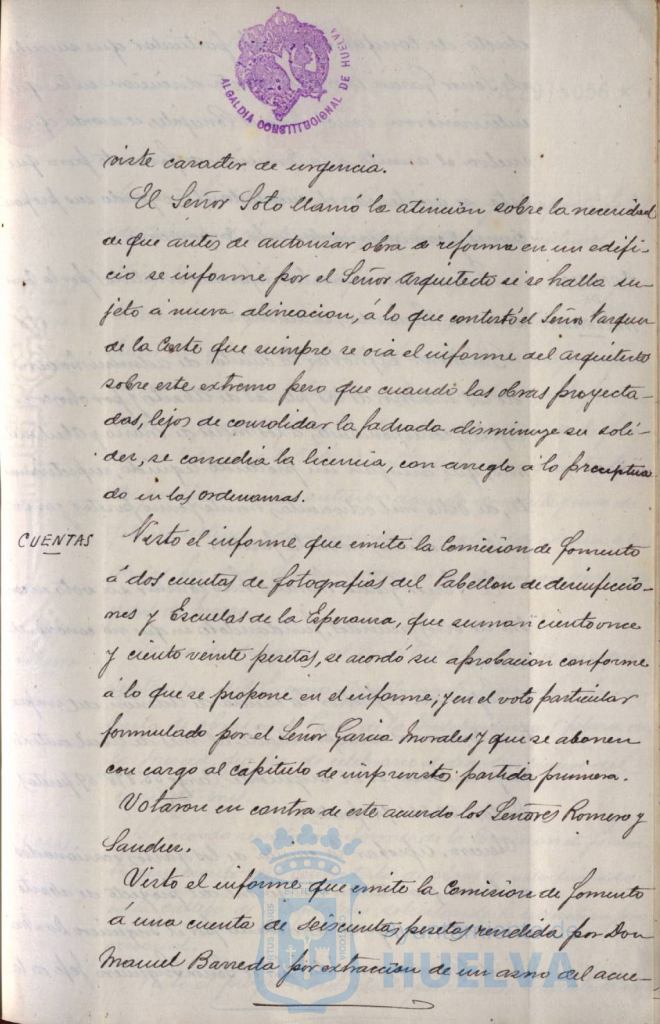 ALCALDIA CONSTITUCIONAL DE HUELVA
viste caracter de urgencia.
El Señor Soto llamó la atencion sobre la necesidad
de que antes de autorizar obra de reforma en un edifi-
cio se informe por el Señor Arquitecto si se halla su-
jeto á nueva alineacion, á lo que contestó el Señor Vazquez
de la Corte que siempre se oia el informe del arquitecto
sobre este extremo pero que cuando las obras proyecta-
das, lejos de consolidar la fachada disminuye su soli-
dez, se concedia la licencia, con arreglo á lo preceptua
do en las ordenanzas.
CUENTAS
Visto el informe que emite la Comision de Fomento
á dos cuentas de fotografias del Pabellon de desinfeccio-
nes y Escuelas de la Esperanza, que suman ciento once
y ciento veinte pesetas, se acordó su aprobacion conforme
á lo que se propone en el informe, y en el voto particular
formulado por el Señor Garcia Morales y que se abonen
con cargo al capitulo de imprevistos partida primera.
Votaron en contra de este acuerdo los Señores Romero y
Sanchez.
Visto el informe que emite la Comision de Fomento
á una cuenta de seiscientas pesetas rendida por Don
Manuel Barreda por extraccion de un asno del acue-
HUELVA